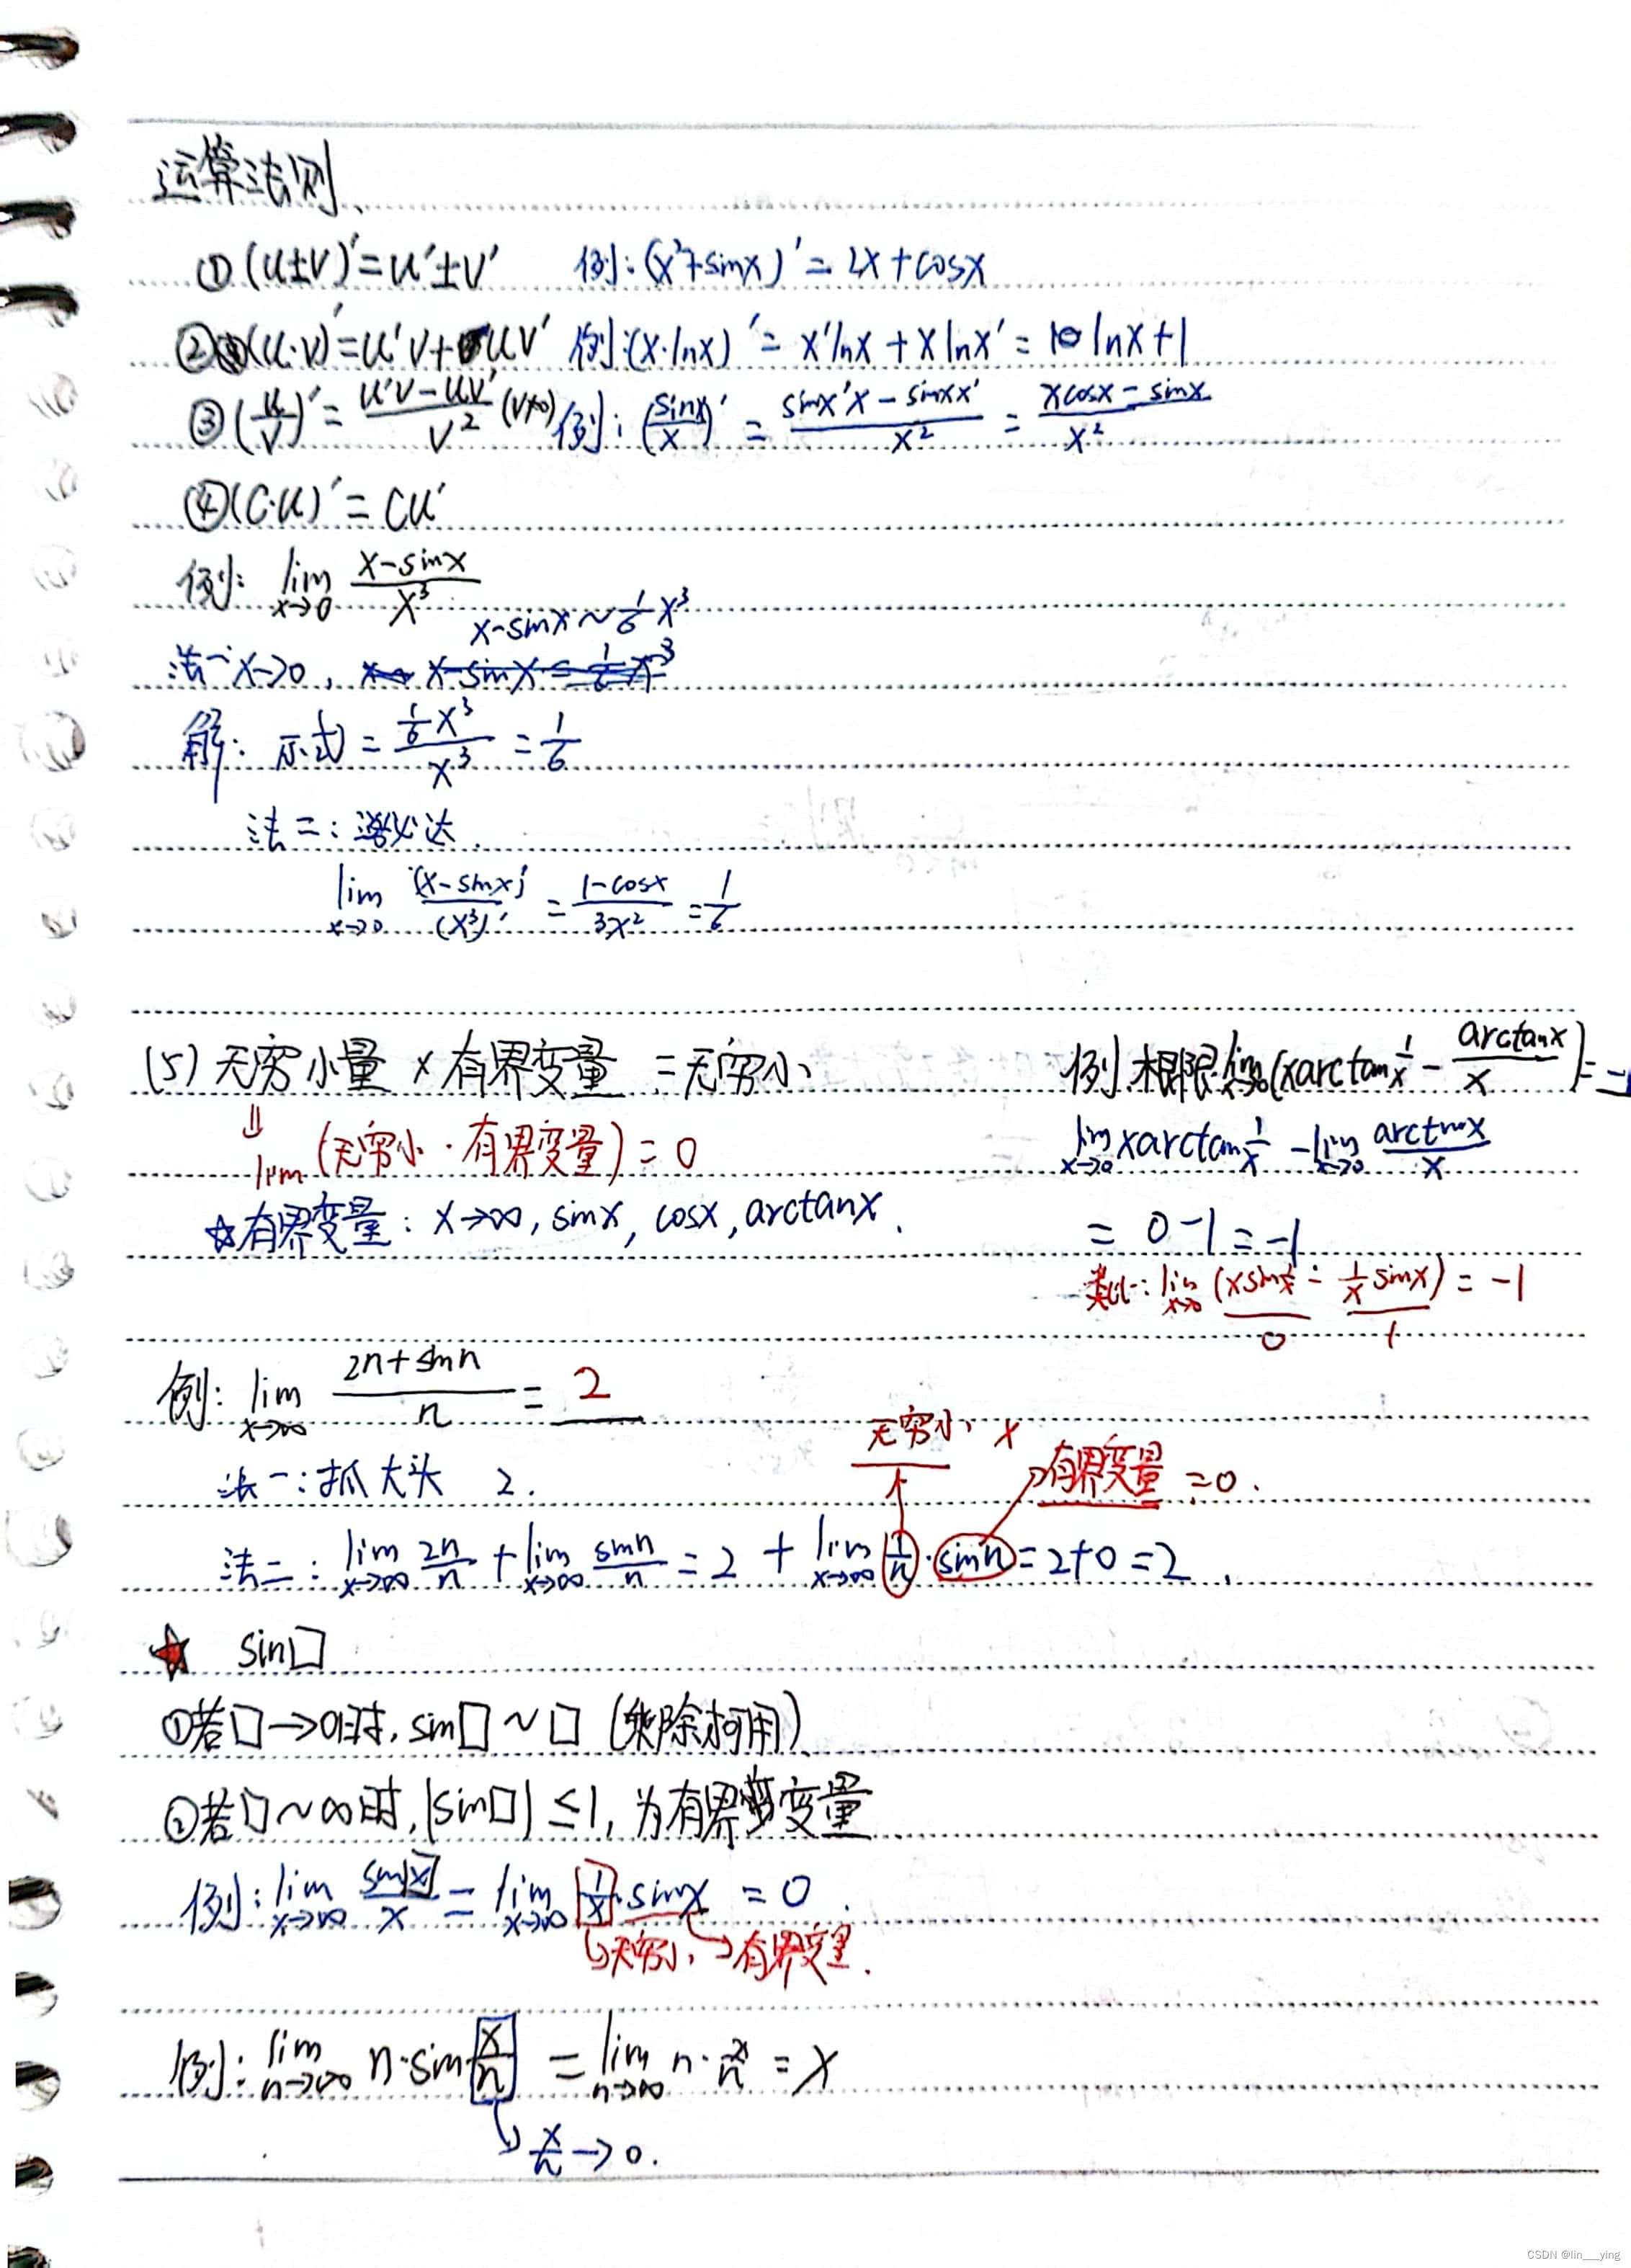 运算法则、
① (u±v)'=u'±v' 例:(x²+sinx)'=2x+cosx
② (u·v)'=u'v+uv' 例:(x·lnx)'=x'lnx+xlnx'=lnx+1
③ (u/v)'=(u'v-uv')/v² (v≠0) 例:(sinx/x)'=(sinx'x-sinxx')/x²=(xcosx-sinx)/x²
④ (C·u)'=Cu'
例: lim x→0 (x-sinx)/x³
x-sinx~1/6 x³
法一 x→0,
解: 示式=(1/6 x³)/x³=1/6
法二:洛必达.
lim x→0 (x-sinx)'/(x³)'=(1-cosx)/3x²=1/6
(5)无穷小量×有界变量=无穷小
⇓ lim(无穷小·有界变量)=0
☆有界变量: x→∞, sinx, cosx, arctanx.
例.极限lim x→0 (xarctan1/x-arctanx/x)=-1
lim x→0 xarctan1/x-lim x→0 arctanx/x
=0-1=-1
类比: lim x→0 (xsin1/x-1/x sinx)=-1
0 1
例: lim x→∞ (2n+sinn)/n=2
法一:抓大头 2.
无穷小 × 有界变量=0.
法二: lim x→∞ 2n/n+lim x→∞ sinn/n=2+lim x→∞ 1/n·sinn=2+0=2.
★ sin□
①若□→0时,sin□~□(乘除才可用)
②若□~∞时,|sin□|≤1,为有界变量
例: lim x→∞ sinx/x=lim x→∞ 1/x·sinx=0.
→无穷小 →有界变量.
例: lim n→∞ n·sin x/n=lim n→∞ n·x/n=x
x/n→0.
CSDN @lin___ying